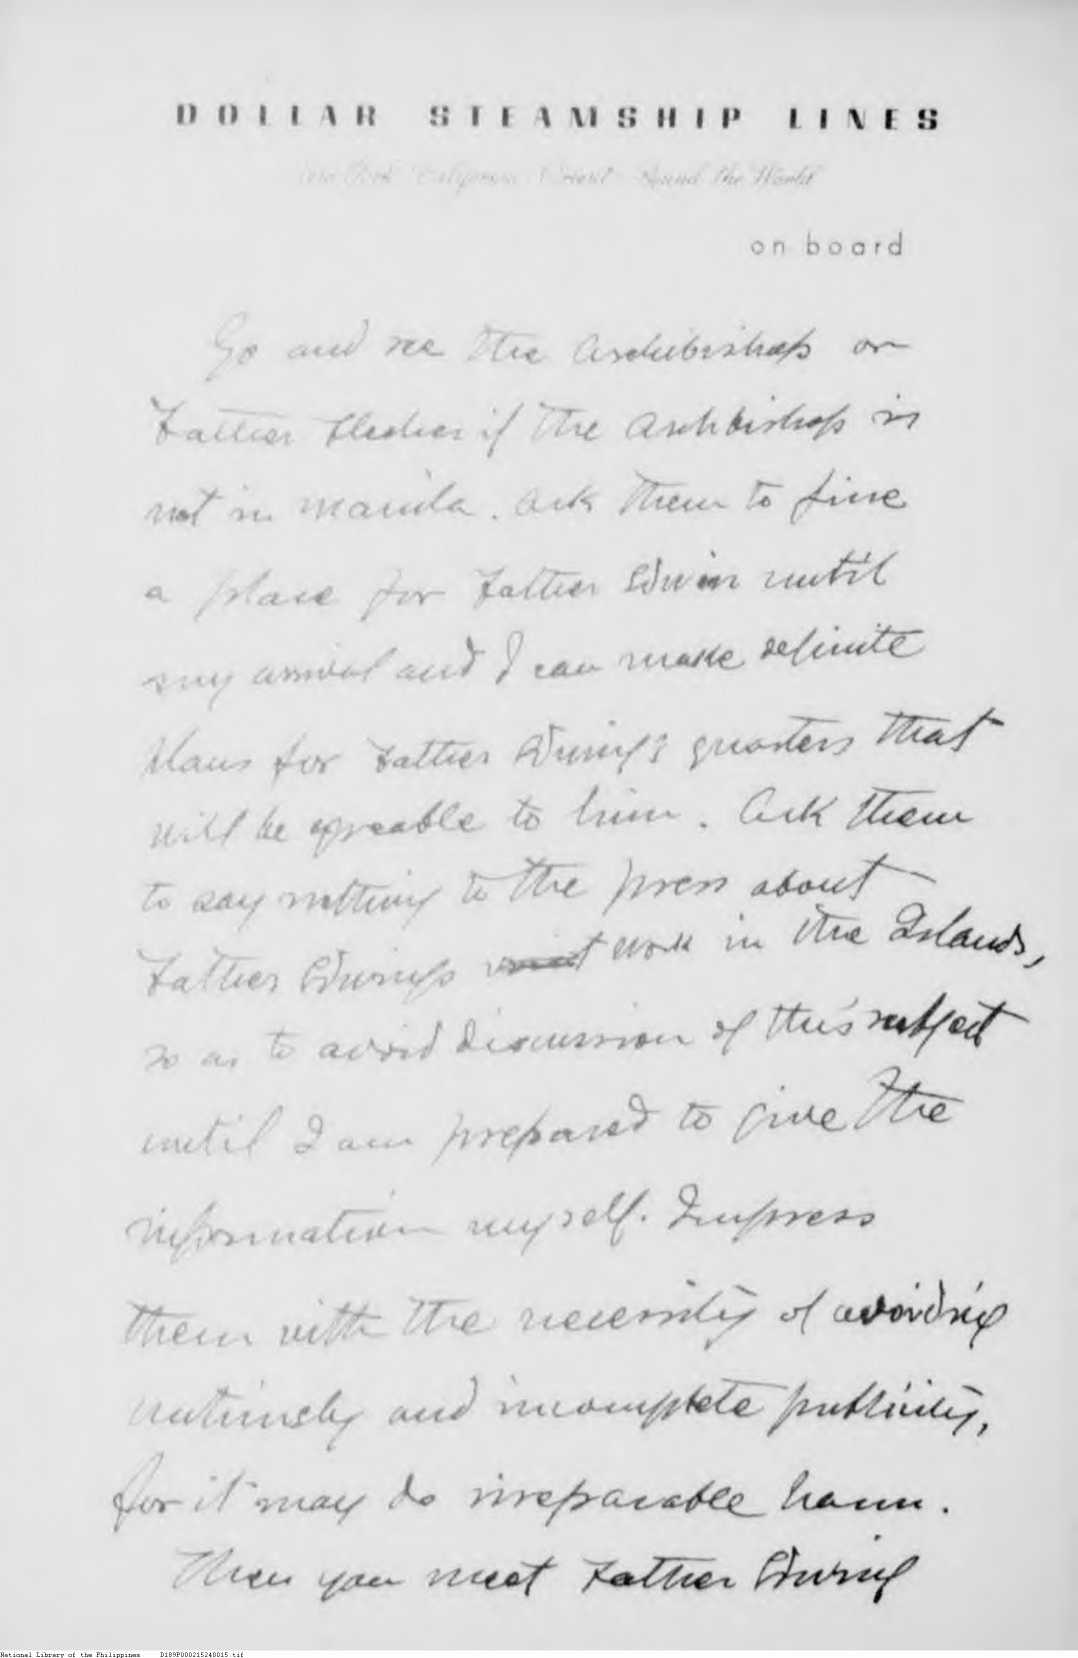 DOLLAR STEAMSHIP LINES
New York California Orient Round the World
on board
Go and see the Archbishop or
Father if the Archbishop is
not in Manila. Ask them to fine
a place for Father until
my arrival and I can make definite
plans for Father quarters that
will be agreable to him. Ask them
to say nothing to the press about
Father work in the Islands,
so as to avoid discussion of this subject
until I am prepared to give the
information myself. Impress
them with the necessity of avoiding
untimely and incomplete publicity,
for it may do irreparable harm.
When you meet Father
National Library of the Philippines D189P000215240015.tif